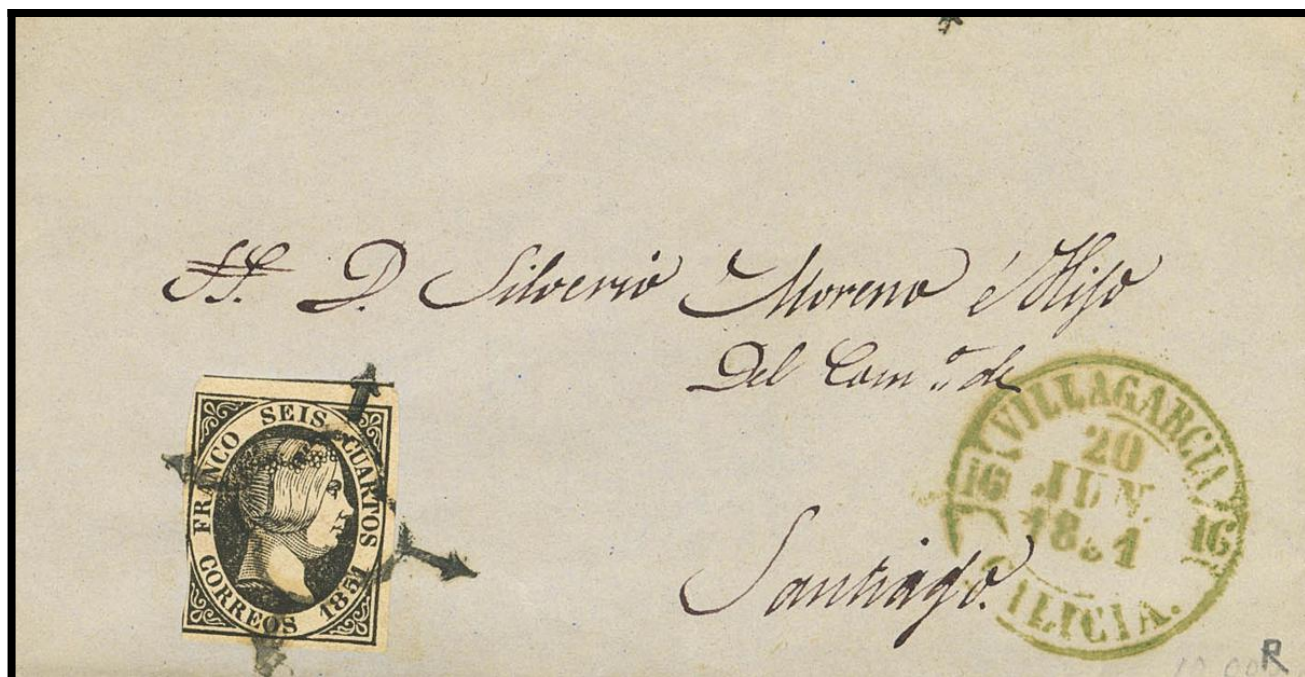 SS. D. Silverio Moreno é Hijo
Del Com.º de
Santiago.
FRANCO SEIS CUARTOS
CORREOS 1851
VILLAGARCIA
20
JUN
16
16
GALICIA.
R